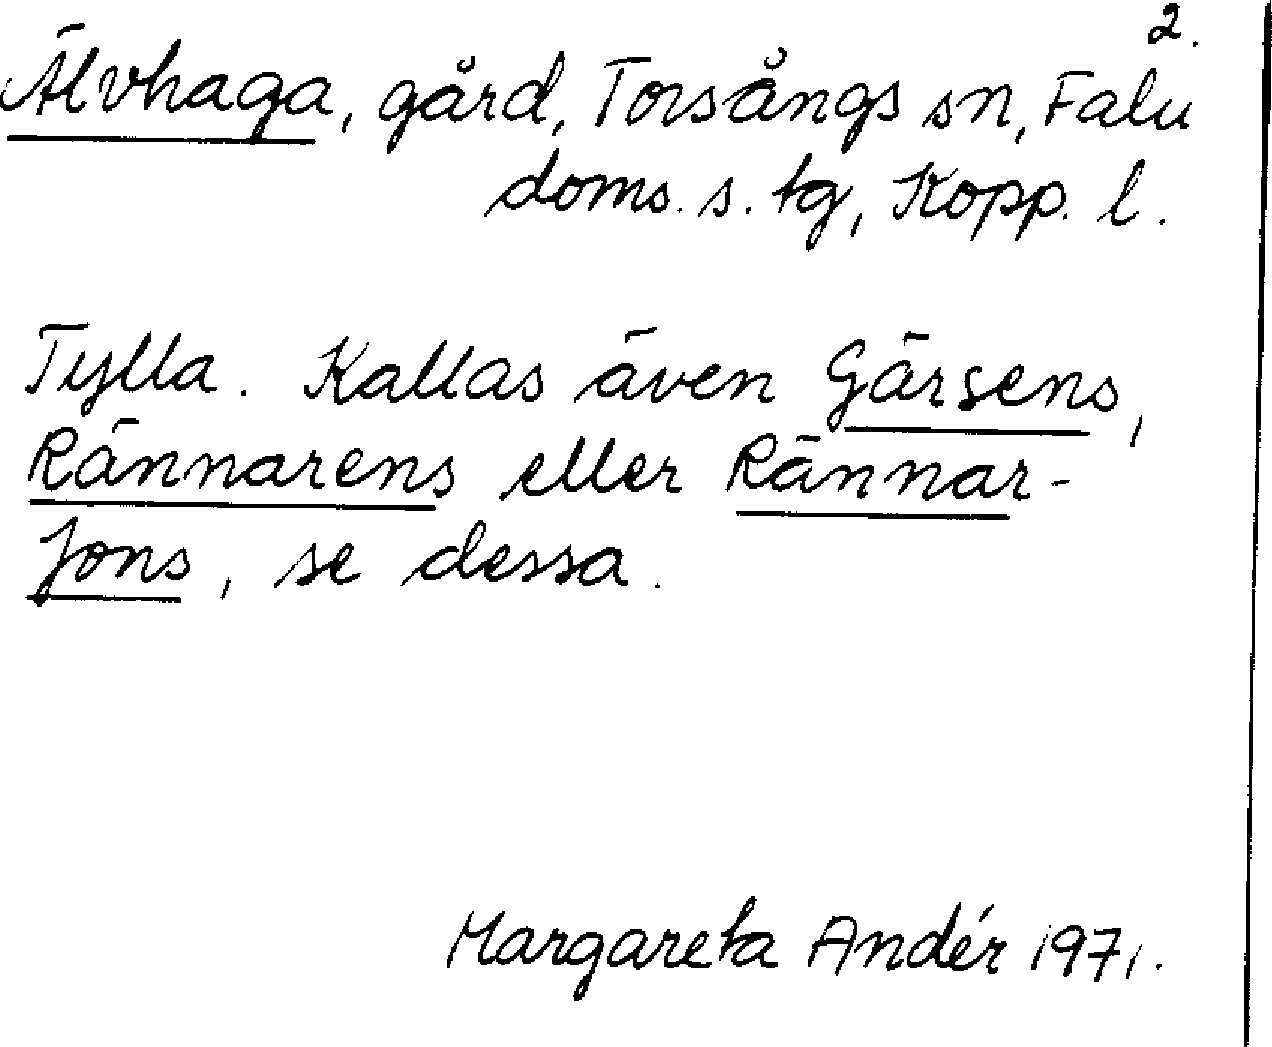 2.
Älvhaga, gård, Torsångs sn, Falu
doms. s. tg, Kopp. l.
Tylla. Kallas även Gärsens,
Rännarens eller Rännar-
Jons, se dessa.
Margareta Andér 1971.